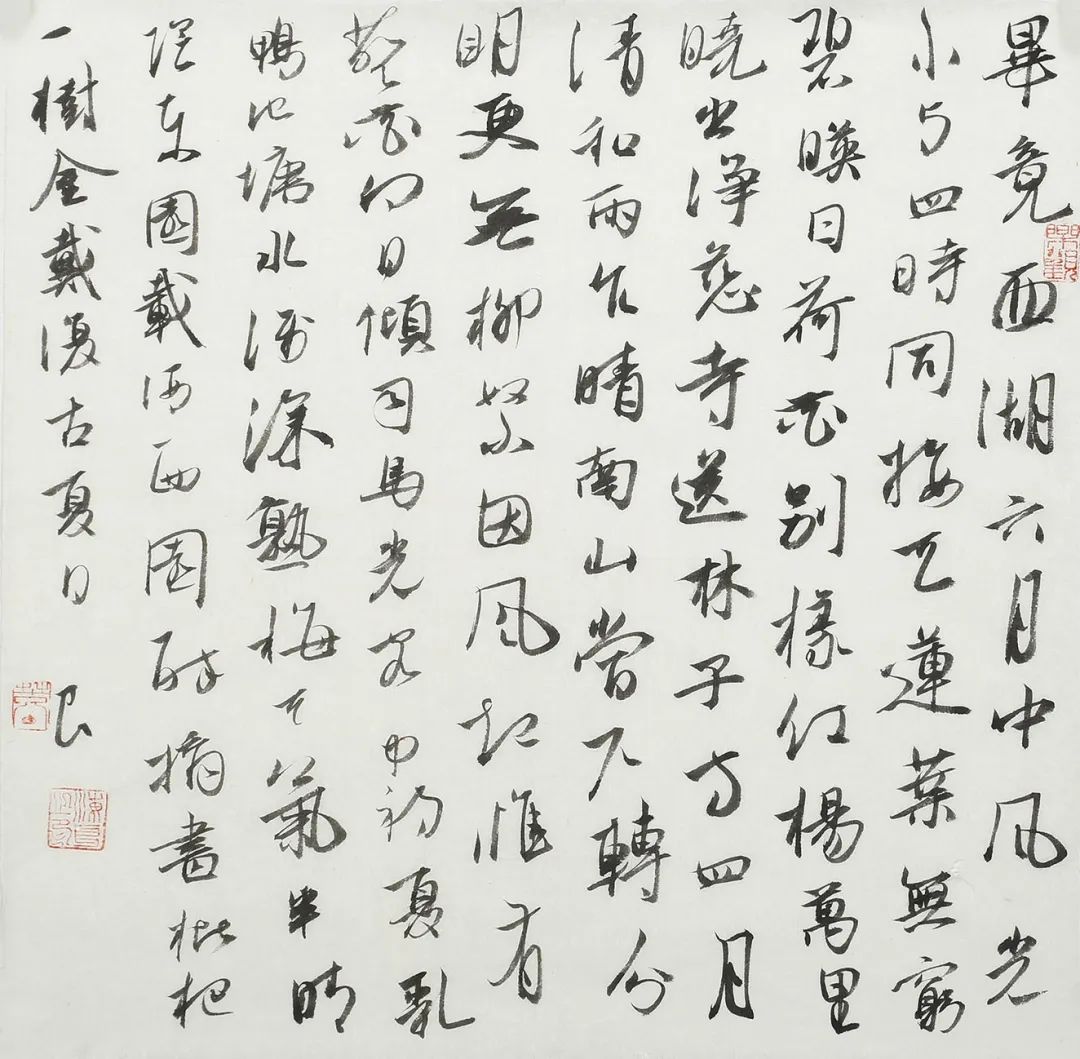 畢竟西湖六月中风光
不与四時同接天蓮葉無窮
碧暎日荷花别樣红楊萬里
曉出淨慈寺送林子方四月
清和雨乍晴南山當户轉分
明更无柳絮因风起惟有
葵花向日傾司馬光客中初夏乳
鴨池塘水浅深熟梅天氣半晴
陰東園載酒西園醉摘盡枇杷
一樹金戴復古夏日 良